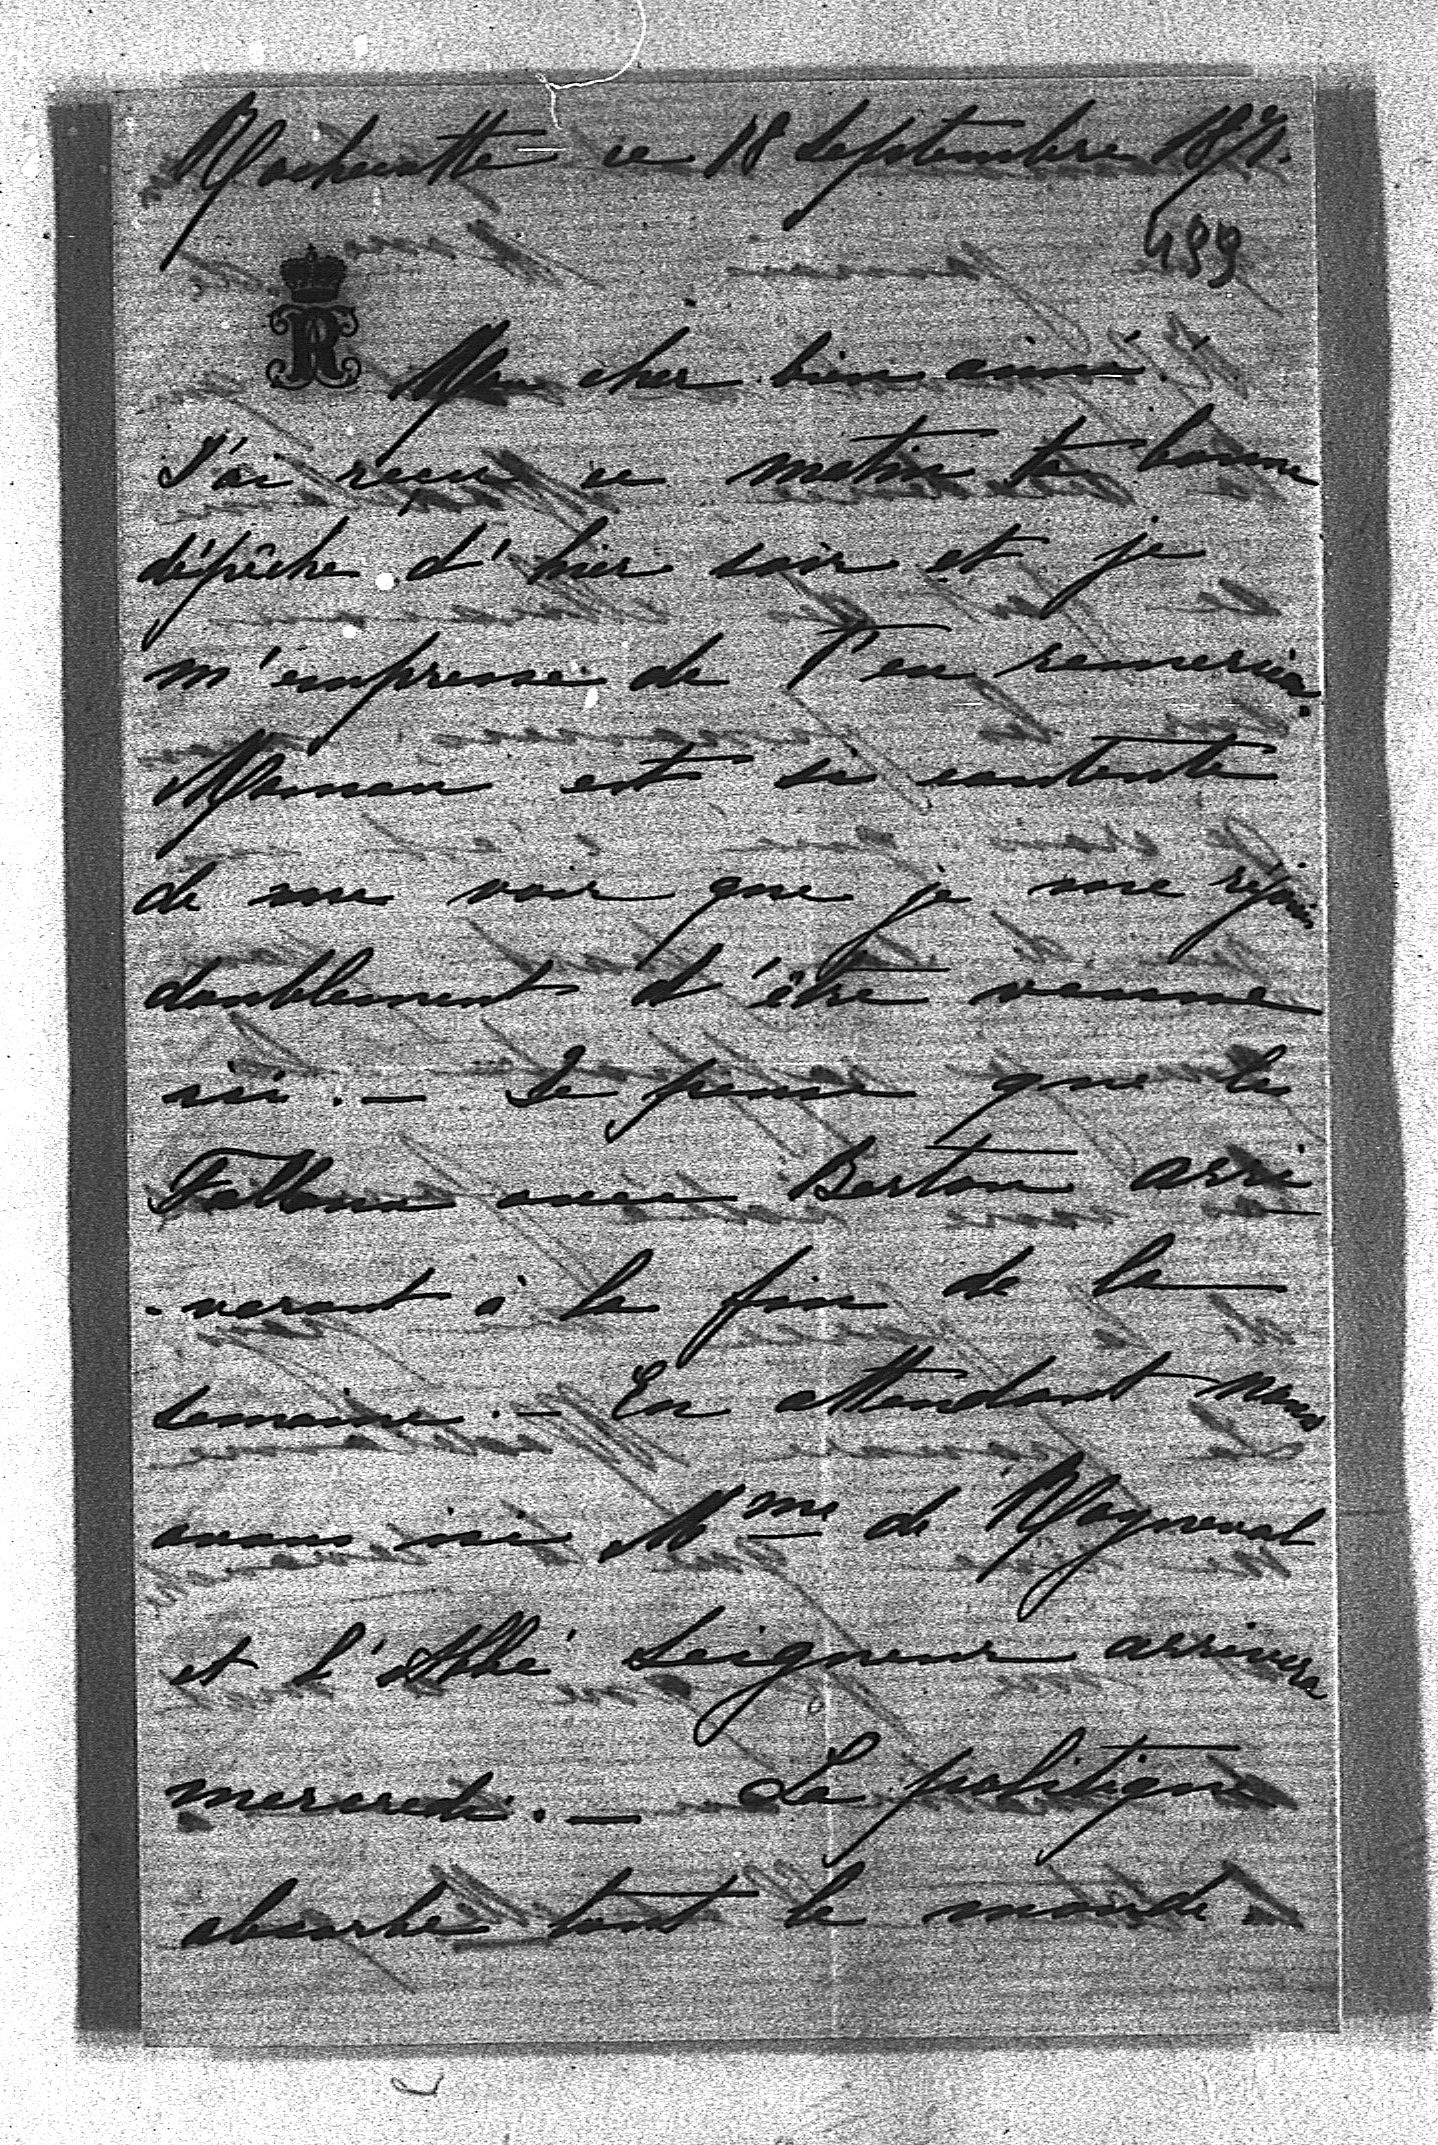 Rochecotte ce 18 Septembre 1871.
499
R
Mon cher bien aimé.
J'ai reçu ce matin ta bonne
dépêche d'hier soir et je
m'empresse de T'en remercier.
Maman est si contente
de me voir que je me réjouis
doublement d'être venue
ici. — Je pense que les
avec Berton arri
- veront à la fin de la
semaine. — En attendant nous
avons ici Mme de
et l'Abbé Seigneur arrivera
mercredi. — La politique
absorbe tout le monde